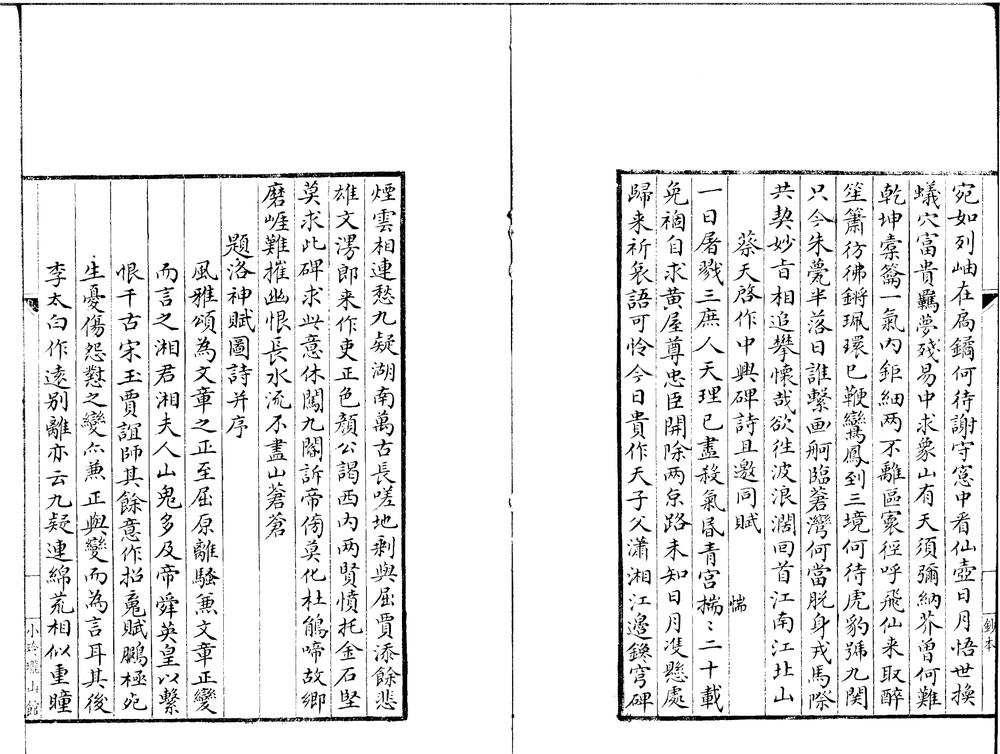 宛如列岫在扃鐍何待謝守窓中看仙壺日月悟世換
蟻穴富貴羈夢殘易中求象山有天須彌納芥曾何難
乾坤橐籥一氣內鉅細两不離區寰徑呼飛仙来取醉
笙簫彷彿鏘珮環已鞭鸞鳳到三境何待虎豹號九関
只今朱甍半落日誰繫画舸臨蒼灣何當脱身戎馬際
共契妙㫖相追攀懷哉欲徃波浪濶回首江南江北山
蔡天啓作中興碑詩且邀同賦
一日屠戮三庶人天理已盡殺氣昏青宫惴〻二十載
惴
免禍自求黄屋尊忠臣開除两京路未知日月䨇懸處
歸来祈哀語可怜今日貴作天子父瀟湘江邉鐫穹碑
鈔本
煙雲相連愁九疑湖南萬古長嗟地剩與屈賈添餘悲
雄文漫郎来作吏正色顔公謁西内两賢憤托金石堅
莫求此碑求此意休闖九閽訴帝傍莫化杜鵑啼故鄉
磨崖難摧幽恨長水流不盡山蒼蒼
題洛神賦圖詩并序
風雅頌為文章之正至屈原離騷兼文章正變
而言之湘君湘夫人山鬼多及帝舜英皇以繫
恨千古宋玉賈誼師其餘意作招䰟賦鵩極𡰖
生憂傷怨懟之變亦兼正與變而為言耳其後
李太白作遠别離亦云九疑連綿荒相似重瞳
小玲瓏山館